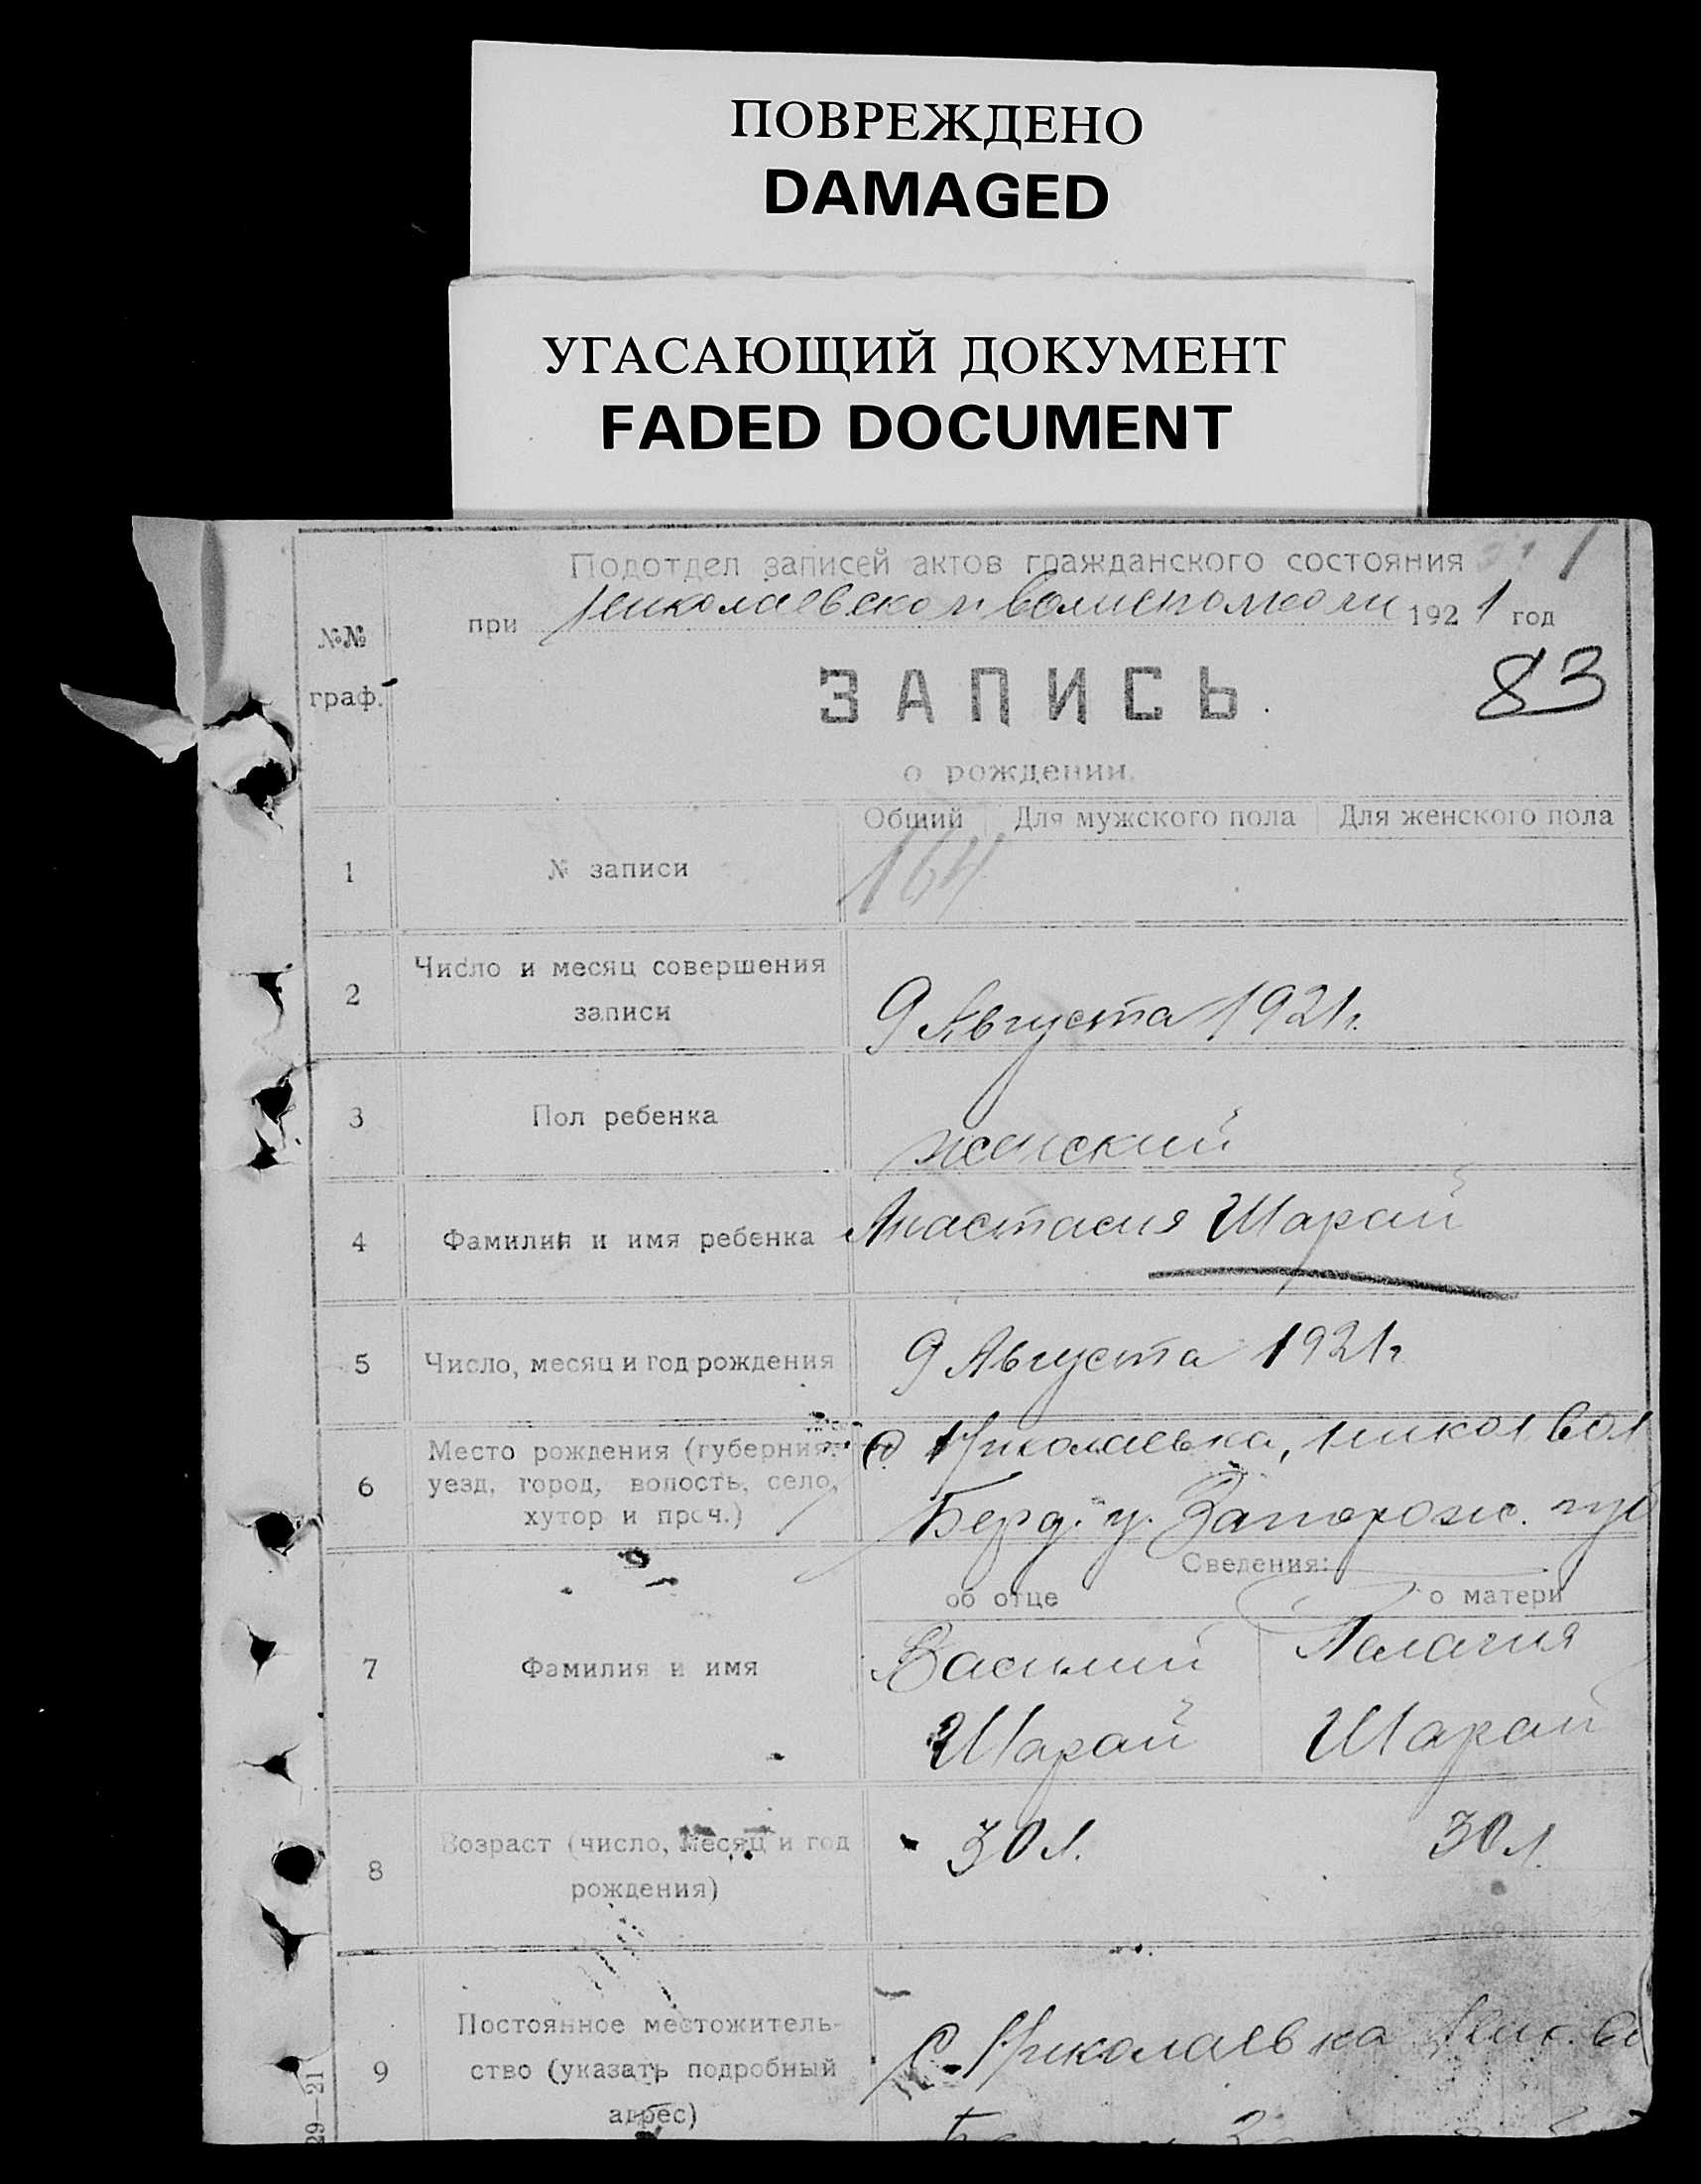 ПОВРЕЖДЕНО
DAMAGED
УГАСАЮЩИЙ ДОКУМЕНТ
FADED DOCUMENT
Подотдел записей актов гражданского состояния
при Николаевском волисполкоме 1921 год
№№
граф.
ЗАПИСЬ
83
о рождении.
Общий Для мужского пола Для женского пола
1 № записи 164
2 Число и месяц совершения
записи 9 Августа 1921г.
3 Пол ребенка женский
4 Фамилия и имя ребенка Анастасия Шарай
5 Число, месяц и год рождения 9 Августа 1921г
6 Место рождения (губерния, с Николаевка, Никол вол
уезд, город, волость, село, хутор и проч.) Берд. у. Запорож. губ
Сведения:
об отце о матери
7 Фамилия и имя Василий Пелагия
Шарай Шарай
8 Возраст (число, месяц и год 30 л. 30 л.
рождения)
9 Постоянное местожитель-
ство (указать подробный С. Николаевка Ник. во
адрес)
29—21